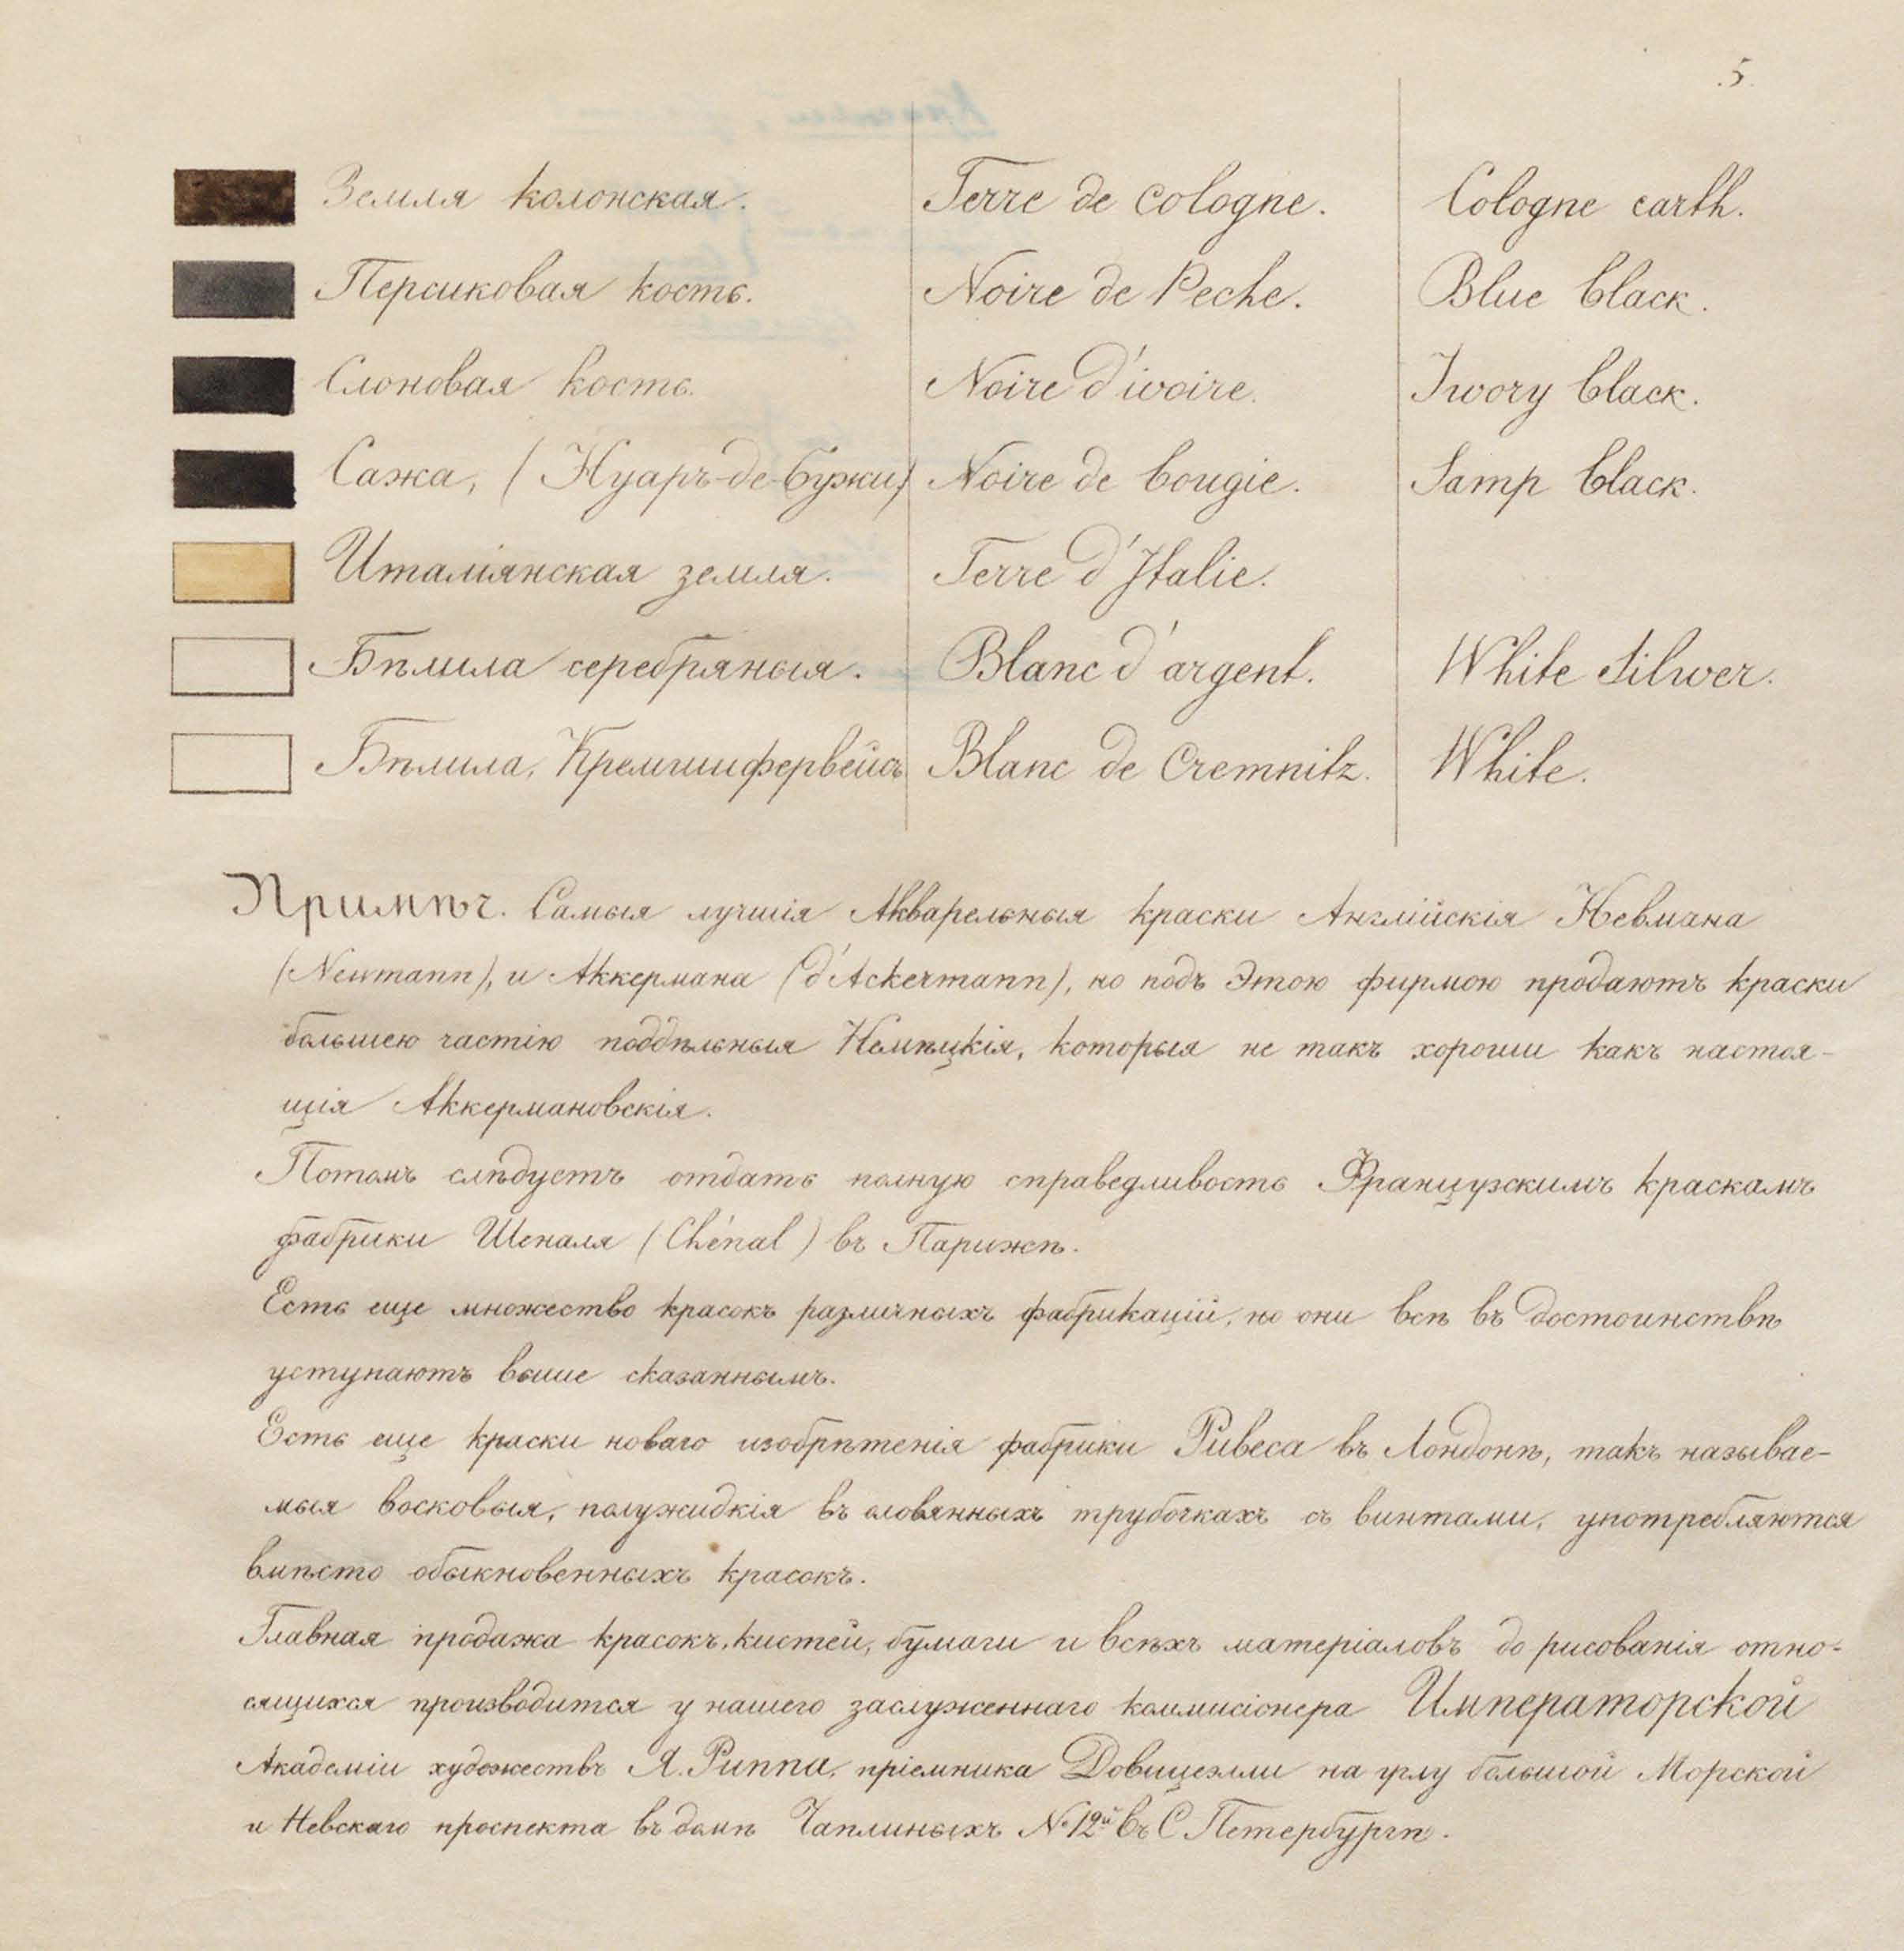 .5.
Земля колонская. Terre de Cologne. Cologne earth.
Персиковая кость. Noire de Peche. Blue black.
Слоновая кость. Noire d'ivoire. Iwory black.
Сажа, (Нуаръ-де-бужи) Noire de bougie. Lamp black.
Италіянская земля. Terre d'Italie.
Бѣлила серебряныя. Blanc d'argent. White Silwer.
Бѣлила, Кремницфервейсъ Blanc de Cremnitz. White.
Примѣч. Самыя лучшія Акварельныя краски Англійскія Невмана
(Newmann), и Аккермана (d'Ackermann), но подъ Этою фирмою продаютъ краски
большею частію поддѣльныя Немѣцкія, которыя не такъ хороши какъ настоя-
щія Аккермановскія.
Потомъ слѣдуетъ отдать полную справедливость Французскимъ краскамъ
фабрики Шеналя (Chénal) въ Парижѣ.
Есть еще множество красокъ различныхъ фабрикацій, но они всѣ въ достоинствѣ
уступаютъ выше сказаннымъ.
Есть еще краски новаго изобрѣтенія фабрики Ривеса въ Лондонѣ, такъ называе-
мыя восковыя, полужидкія въ оловянныхъ трубочкахъ съ винтами, употребляются
вмѣсто обыкновенныхъ красокъ.
Главная продажа красокъ, кистей, бумаги и всѣхъ матеріаловъ до рисованія отно-
сящихся производится у нашего заслуженнаго коммисіонера Императорской
Академіи художествъ А. Риппа, пріемника Довицелли на углу большой Морской
и Невскаго проспекта въ домѣ Чаплиныхъ № 12й въ С Петербургѣ.